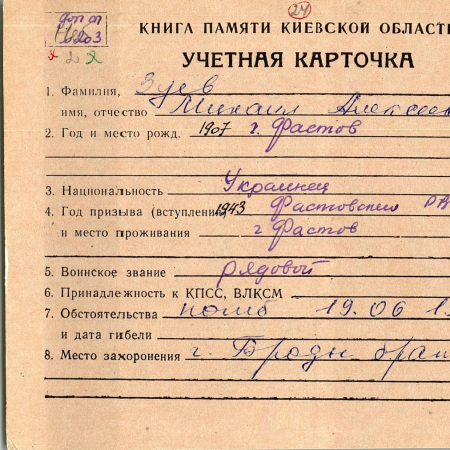 24
КНИГА ПАМЯТИ КИЕВСКОЙ ОБЛАСТ
УЧЕТНАЯ КАРТОЧКА
1. Фамилия, Зуев
имя, отчество Михаил Алексее
2. Год и место рожд. 1907 г. Фастов
3. Национальность Украинец
4. Год призыва (вступления) 1943 Фастовский РВ
и место проживания г Фастов
5. Воинское звание рядовой
6. Принадлежность к КПСС, ВЛКСМ
7. Обстоятельства погиб 19.06 1
и дата гибели
8. Место захоронения г. Броды брат